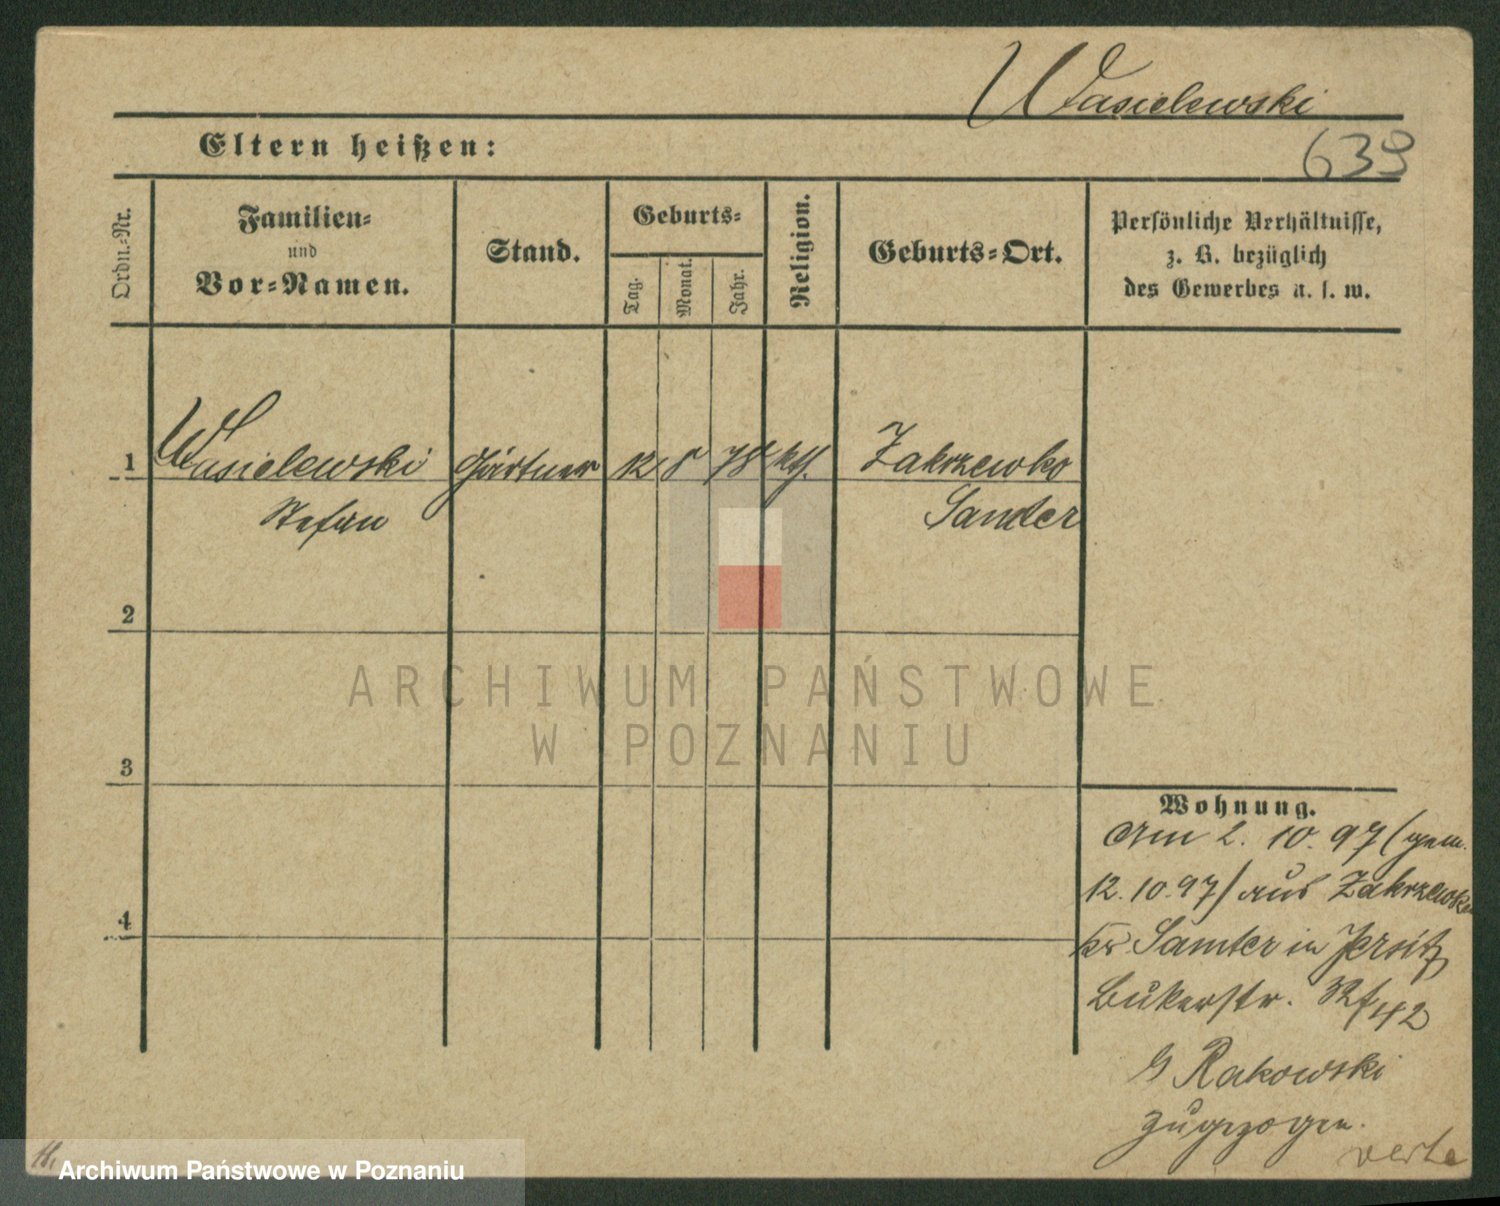 Wasielewski
Eltern heißen:
639
Ordn.-Nr.
Familien-
und
Vor-Namen.
Stand.
Geburts-
Tag.
Monat.
Jahr.
Religion.
Geburts-Ort.
Persönliche Verhältnisse,
z. B. bezüglich
des Gewerbes u. s. w.
1 Wasielewski Gärtner 12 8 78 kth. Zakrzewko
Stefan Samter
2
3
4
ARCHIWUM PAŃSTWOWE
W POZNANIU
Wohnung.
Am 2. 10. 97 (gem.
12. 10. 97) aus Zakrzewko
Kr Samter in Jersitz
Bukerstr. 42
b Rakowski
zugezogen.
verte
Archiwum Państwowe w Poznaniu